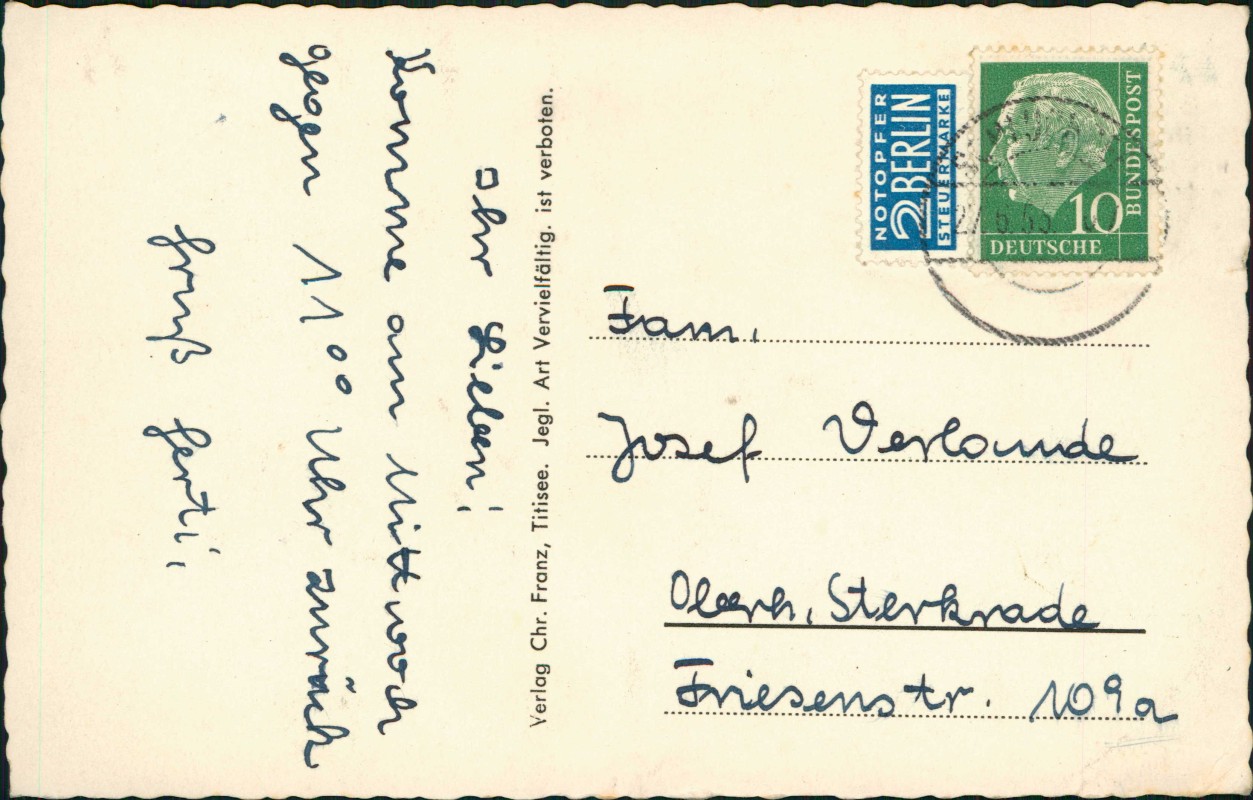 Ihr Lieben!
Komme am Mittwoch
gegen 11⁰⁰ Uhr zurück
Gruß Gerti,
Verlag Chr. Franz, Titisee. Jegl. Art Vervielfältig. ist verboten.
NOTOPFER
2 BERLIN
STEUERMARKE
10
DEUTSCHE
BUNDESPOST
Fam.
Josef
Oberh, Sterkrade
Friesenstr. 109a